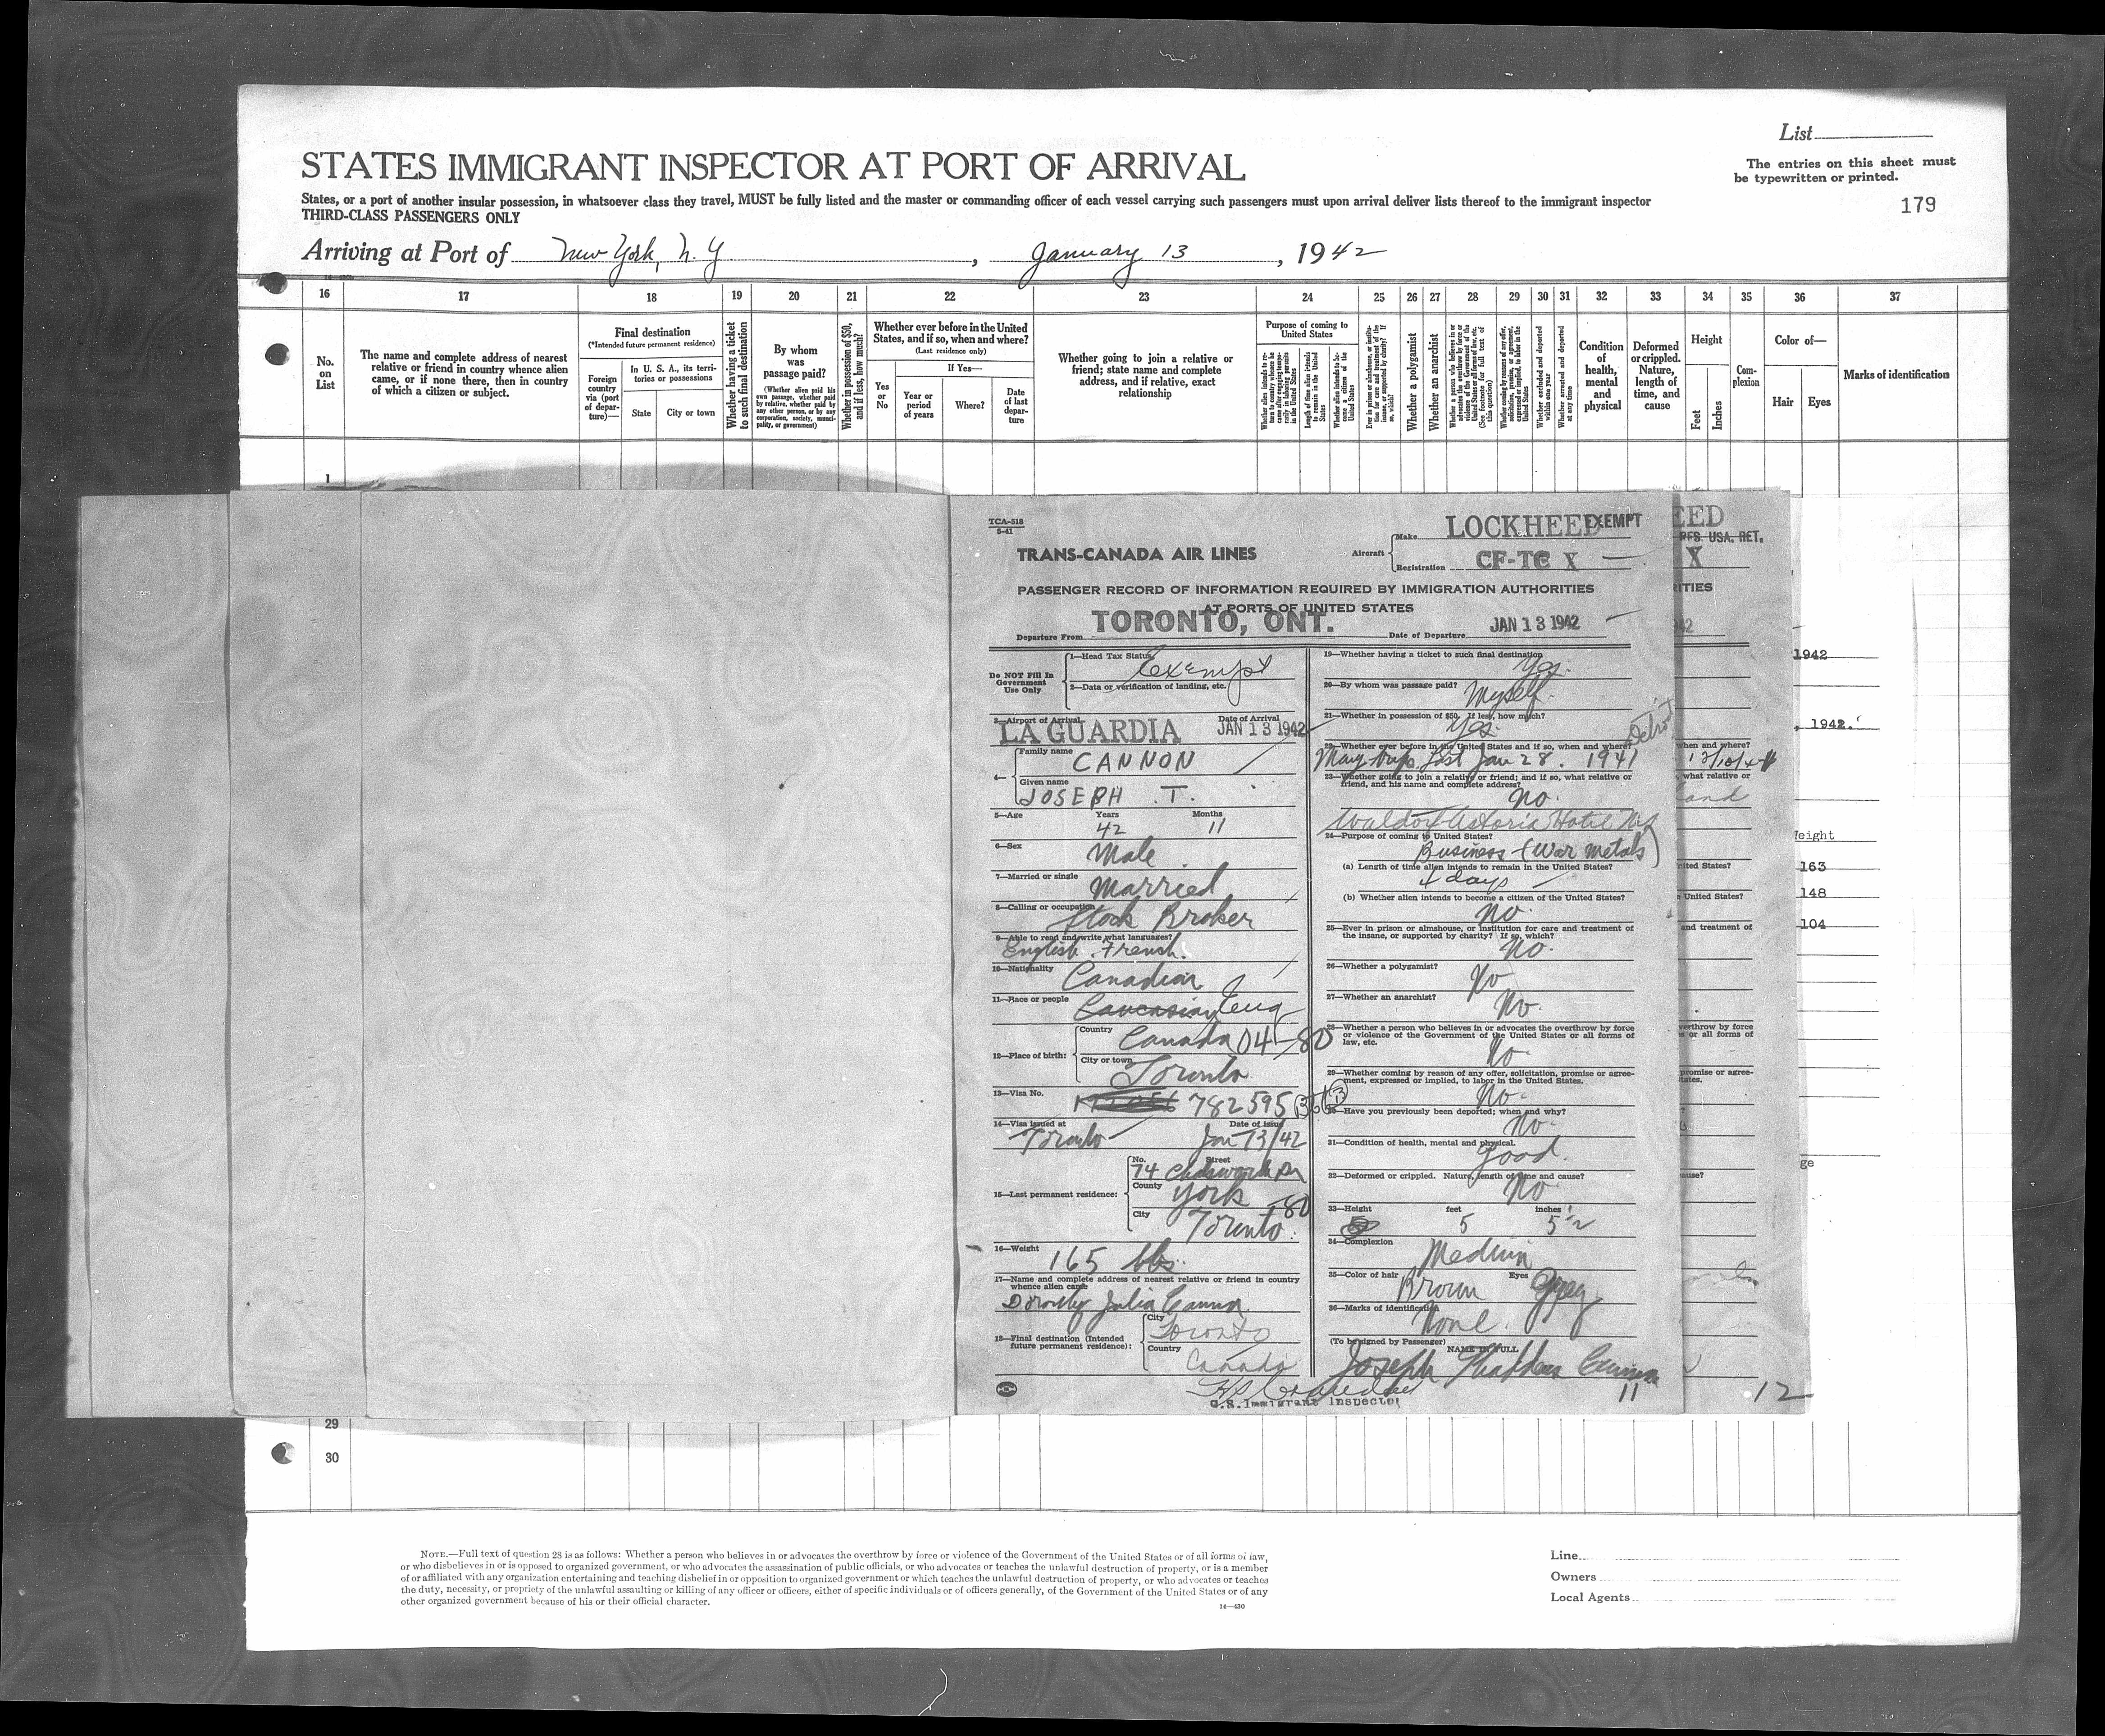 List
STATES IMMIGRANT INSPECTOR AT PORT OF ARRIVAL
The entries on this sheet must
be typewritten or printed.
States, or a port of another insular possession, in whatsoever class they travel, MUST be fully listed and the master or commanding officer of each vessel carrying such passengers must upon arrival deliver lists thereof to the immigrant inspector
THIRD-CLASS PASSENGERS ONLY
179
Arriving at Port of New York, N.Y, January 13, 1942
16 17 18 19 20 21 22 23 24 25 26 27 28 29 30 31 32 33 34 35 36 37
No.
on
List
The name and complete address of nearest
relative or friend in country whence alien
came, or if none there, then in country
of which a citizen or subject.
Final destination
(*Intended future permanent residence)
Foreign
country
via (port
of depar-
ture)—
In U. S. A., its terri-
tories or possessions
State
City or town
Whether having a ticket
to such final destination
By whom
was
passage paid?
(Whether alien paid his
own passage, whether paid
by relative, whether paid by
any other person, or by any
corporation, society, munici-
pality, or government)
Whether in possession of $50,
and if less, how much?
Whether ever before in the United
States, and if so, when and where?
(Last residence only)
Yes
or
No
If Yes—
Year or
period
of years
Where?
Date
of last
depar-
ture
Whether going to join a relative or
friend; state name and complete
address, and if relative, exact
relationship
Purpose of coming to
United States
Length of time alien intends
to remain in the United
States
Whether a polygamist
Whether an anarchist
Condition
of
health,
mental
and
physical
Deformed
or crippled.
Nature,
length of
time, and
cause
Height
Feet
Inches
Com-
plexion
Color of—
Hair
Eyes
Marks of identification
1
TCA-518
5-41
TRANS-CANADA AIR LINES
Aircraft
Make LOCKHEED EXEMPT
Registration CF-TC X
PASSENGER RECORD OF INFORMATION REQUIRED BY IMMIGRATION AUTHORITIES
AT PORTS OF UNITED STATES
Departure From TORONTO, ONT.
Date of Departure JAN 13 1942
Do NOT Fill In
Government
Use Only
1—Head Tax Status Exempt
2—Data or verification of landing, etc.
3—Airport of Arrival LA GUARDIA
Date of Arrival JAN 13 1942
4—
Family name CANNON
Given name JOSEPH .T.
5—Age Years 42 Months 11
6—Sex Male
7—Married or single Married
8—Calling or occupation Stock Broker
9—Able to read and write what languages?
English. French.
10—Nationality Canadian
11—Race or people Caucasian Eng
12—Place of birth:
Country Canada 04-80
City or town Toronto
13—Visa No. 782595
14—Visa issued at Toronto
Date of issue Jan 13/42
15—Last permanent residence:
No. 74 Street
County York -80
City Toronto.
16—Weight 165 lbs.
17—Name and complete address of nearest relative or friend in country
whence alien came
Dorothy Julia Cannon
18—Final destination (Intended
future permanent residence):
City Toronto
Country Canada
U.S. Immigrant Inspector
19—Whether having a ticket to such final destination
Yes.
20—By whom was passage paid?
Myself.
21—Whether in possession of $50. If less, how much?
Yes.
Detroit
22—Whether ever before in the United States and if so, when and where?
Many trips. Last Jan 28. 1941
23—Whether going to join a relative or friend; and if so, what relative or
friend, and his name and complete address?
No.
Waldorf-Astoria Hotel NY
24—Purpose of coming to United States?
Business (War metals)
(a) Length of time alien intends to remain in the United States?
4 days
(b) Whether alien intends to become a citizen of the United States?
No.
25—Ever in prison or almshouse, or institution for care and treatment of
the insane, or supported by charity? If so, which?
No.
26—Whether a polygamist?
No
27—Whether an anarchist?
No.
28—Whether a person who believes in or advocates the overthrow by force
or violence of the Government of the United States or all forms of
law, etc.
No
29—Whether coming by reason of any offer, solicitation, promise or agree-
ment, expressed or implied, to labor in the United States.
No.
30—Have you previously been deported; when and why?
No.
31—Condition of health, mental and physical.
Good.
32—Deformed or crippled. Nature, length of time and cause?
No
33—Height feet inches
5 5½
34—Complexion
Medium
35—Color of hair Brown Eyes Grey
36—Marks of identification
None.
(To be signed by Passenger) NAME IN FULL
Joseph Thaddeus Cannon
11
EED
USA. RET.
X
ITIES
1942
, 1942.
when and where?
12/10/41
what relative or
and
eight
ited States?
163
148
United States?
104
and treatment of
verthrow by force
or all forms of
promise or agree-
tates.
ge
ause?
12
29
30
NOTE.—Full text of question 28 is as follows: Whether a person who believes in or advocates the overthrow by force or violence of the Government of the United States or of all forms of law,
or who disbelieves in or is opposed to organized government, or who advocates the assassination of public officials, or who advocates or teaches the unlawful destruction of property, or is a member
of or affiliated with any organization entertaining and teaching disbelief in or opposition to organized government or which teaches the unlawful destruction of property, or who advocates or teaches
the duty, necessity, or propriety of the unlawful assaulting or killing of any officer or officers, either of specific individuals or of officers generally, of the Government of the United States or of any
other organized government because of his or their official character.
14—430
Line
Owners
Local Agents